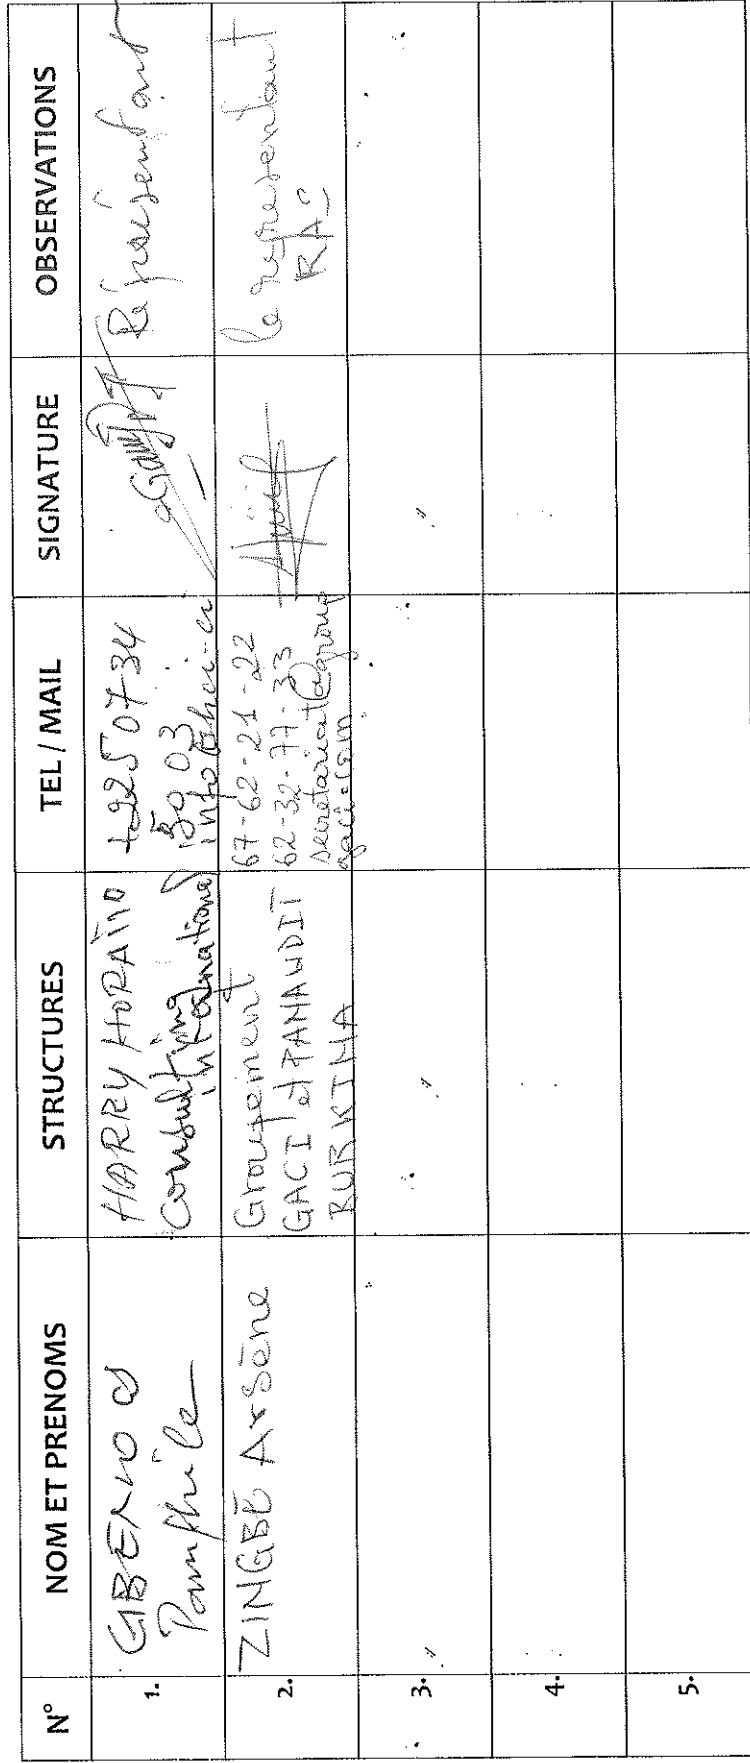 N° NOM ET PRENOMS STRUCTURES TEL / MAIL SIGNATURE OBSERVATIONS
1.
Pamphile
HARRY HORATIO
Consulting
international
+2250734
5903
info@hci-ci
Représentant
2.
ZINGBÉ Arsène
Groupement
GACI et PANAUDIT
BURKINA
67-62-21-22
62-32-77-33
secretariat@groupe
gaci.com
le representant
3.
4.
5.